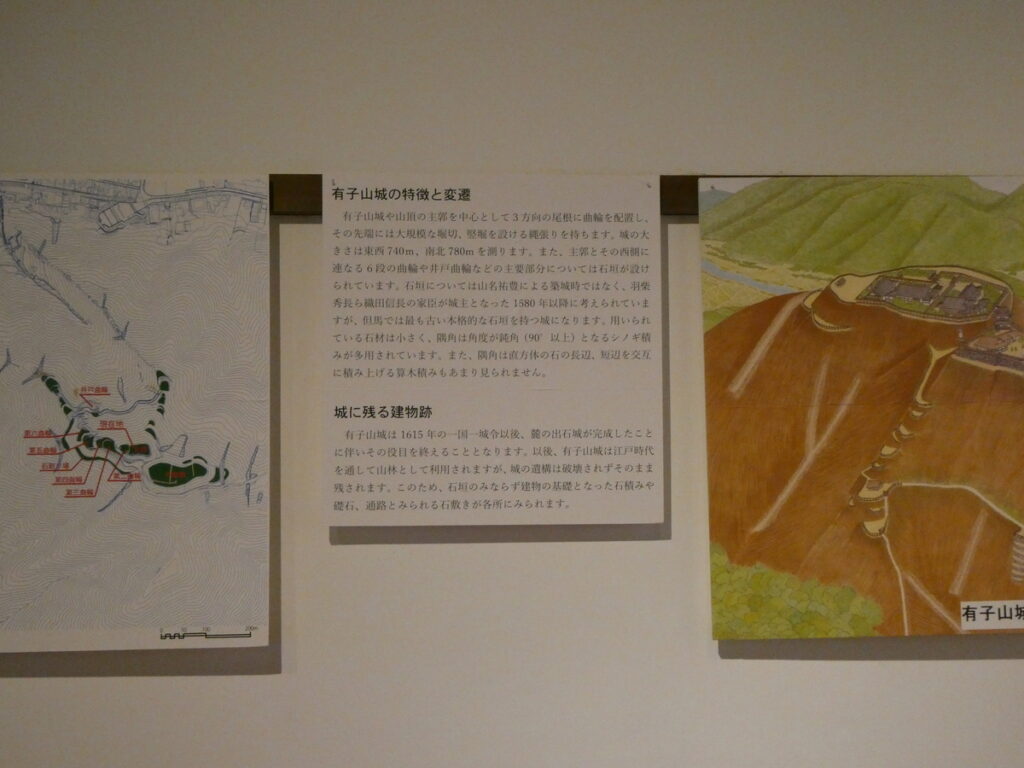 有子山城の特徴と変遷
有子山城や山頂の主郭を中心として3方向の尾根に曲輪を配置し、
その先端には大規模な堀切、竪堀を設ける縄張りを持ちます。城の大
きさは東西740m、南北780mを測ります。また、主郭とその西側に
連なる6段の曲輪や井戸曲輪などの主要部分については石垣が設け
られています。石垣については山名祐豊による築城時ではなく、羽柴
秀長ら織田信長の家臣が城主となった1580年以降に考えられていま
すが、但馬では最も古い本格的な石垣を持つ城になります。用いられ
ている石材は小さく、隅角は角度が鈍角（90°以上）となるシノギ積
みが多用されています。また、隅角は直方体の石の長辺、短辺を交互
に積み上げる算木積みもあまり見られません。
城に残る建物跡
有子山城は1615年の一国一城令以後、麓の出石城が完成したこと
に伴いその役目を終えることとなります。以後、有子山城は江戸時代
を通して山林として利用されますが、城の遺構は破壊されずそのまま
残されます。このため、石垣のみならず建物の基礎となった石積みや
礎石、通路とみられる石敷きが各所にみられます。
現在地
第六曲輪
第五曲輪
第四曲輪
第三曲輪
200m
有子山城